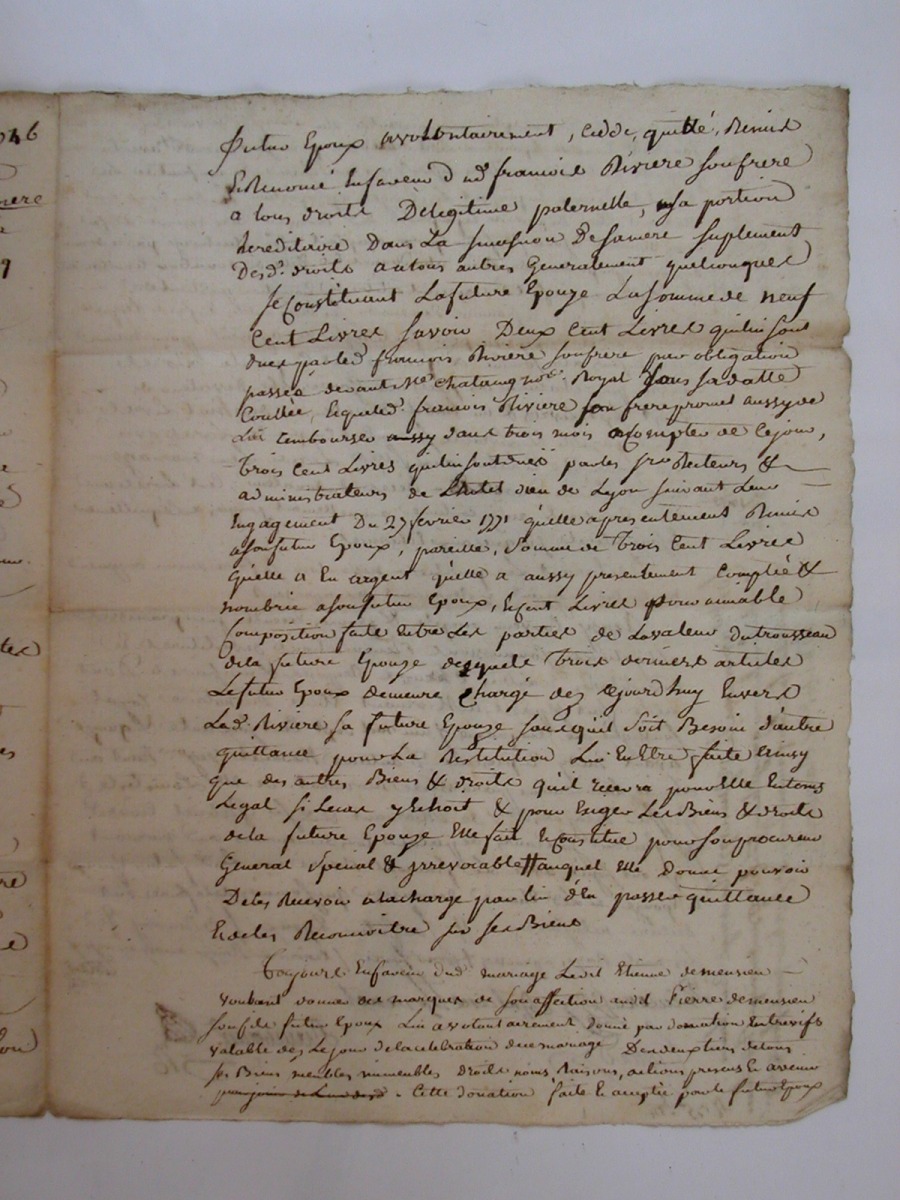 046
futur Epoux avolontairement, cedde, quitté, Remis
& Renoncé Enfaveur d ud francois Riviere son frere
a tous droits De legitime paternelle, sa portion
hereditaire Dans La succession De samere suplement
Desd. droits autous autres Generalement quelconques
Se Constituant Lafuture Epouze La somme de neuf
Cent Livres savoir Deux Cent Livres quilui sont
dues par led francois Riviere son frere par obligation
passée devant Me Chataing nore. Royal sous sa datte
Controllée, Lequeld. francois Riviere son frere promet aussy de
Lui rembourser aussy dans trois mois a Compter de Cejour,
trois Cent Livres quilui sont dues par les srs Recteurs &
administrateurs de L'hotel dieu de Lyon suivant Leur
Engagement Du 27 fevrier 1771 quelle apresentement Remis
asonfutur Epoux, pareille, somme de trois Cent Livres
quelle a En argent quelle a aussy presentement Comptée &
nombrée asonfutur Epoux, & Cent Livres pour amiable
Composition faite Entre Les parties de Lavaleur du trousseau
dela future Epouze desquels trois derniers articles
Lefutur Epoux demeure Chargé des cejourdhuy Envers
Lad. Riviere sa future Epouze sans quil soit Besoin d'autre
quittance pour La Restitution Lui En Etre faite Ainsy
que des autres Biens & droits quil recevra pour Elle Entous
Legal si Lecas y Echoit, & pour Exiger Les Biens & droits
dela future Epouze Elle fait & Constitue pour sonprocureur
General special & irrevocable auquel Elle donne pouvoir
De les Recevoir alacharge par lui d'En passer quittance
& de les Reconnoitre sur ses Biens
Toujours Enfaveur dud mariage Ledit Etienne demensieu
voulant donner des marques de son affection audit Pierre demensieu
son fils futur Epoux Lui avolontairement donné par donation Entrevifs
valable dès Le jour dela celebration du ce mariage Desdeuxtiers detous
ses Biens meubles immeubles droits noms Raisons, actions presens & avenir
Cette donation faite & acceptée par le futur Epoux